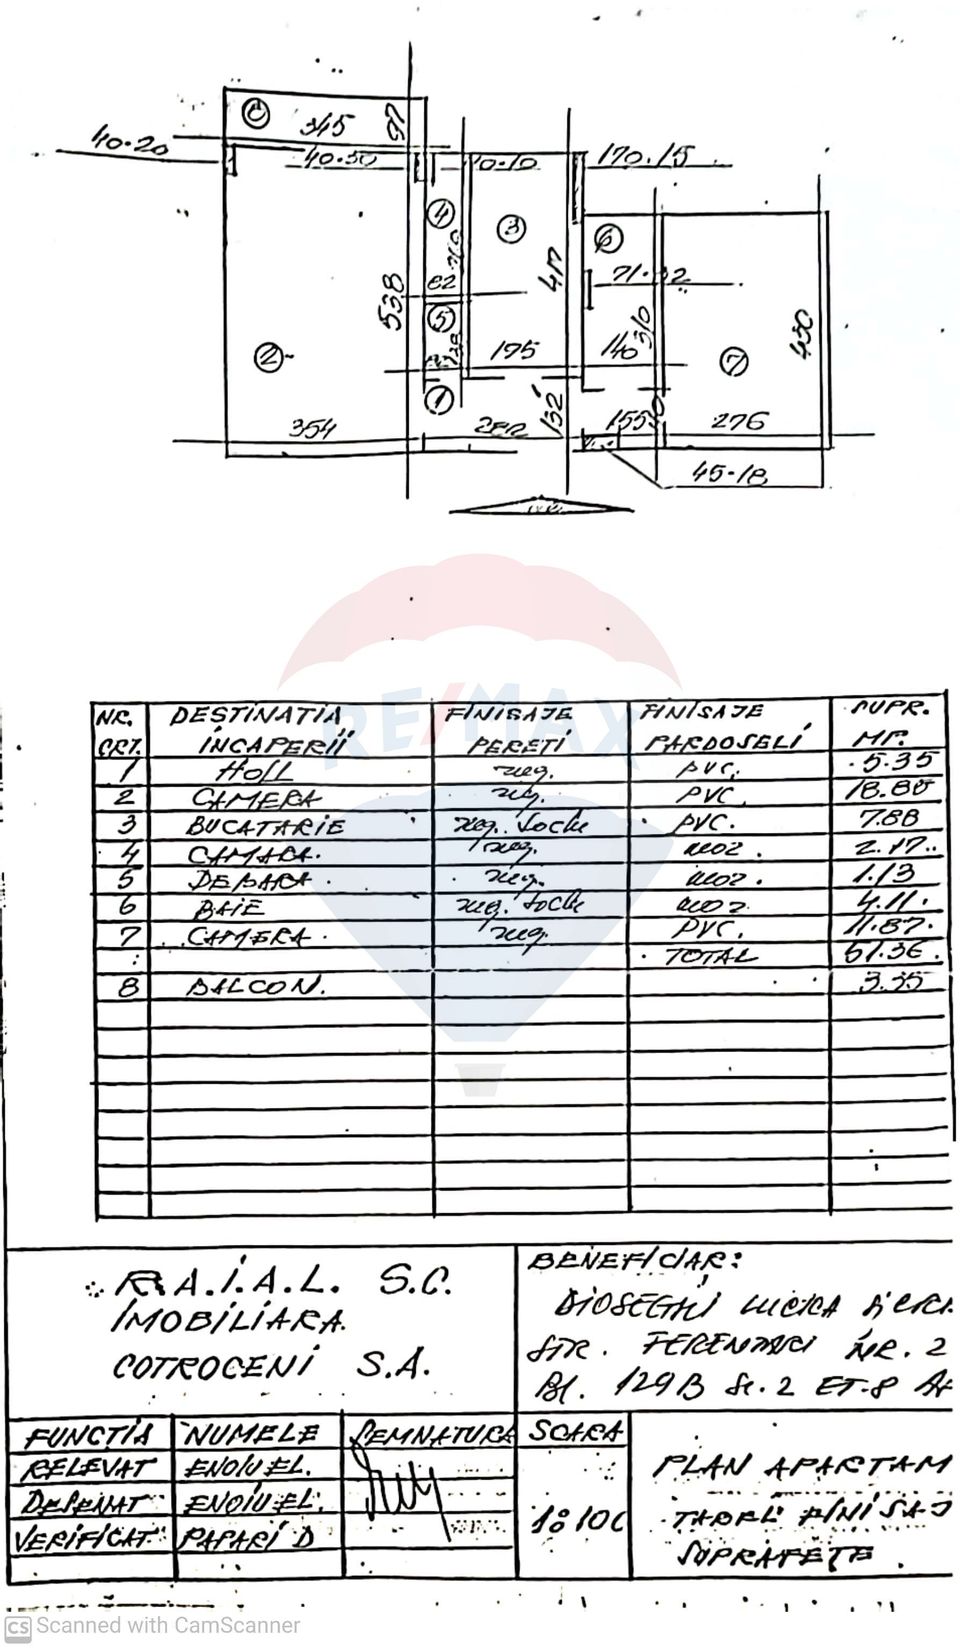 8 345 97
40·20
40·50 10·10 170·15
4 3 6
210
62 417 71·32
538
5
2 195 140 310 430
7
1
132
354 282 155 276
45·18
RE/MAX
NR. CRT. DESTINATIA ÎNCAPERII FINISAJE PERETI FINISAJE PARDOSELI SUPR. MP.
1 HOLL zug. PVC. 5.35
2 CAMERA zug. PVC 18.80
3 BUCATARIE zug. PVC. 7.88
4 CAMARA. zug. MOZ. 2.17
5 DEBARA. zug. MOZ. 1.13
6 BAIE zug. MOZ 4.11.
7 CAMERA. zug. PVC. 11.87.
TOTAL 51.36.
8 BALCON. 3.35
R.A.I.A.L. S.C.
IMOBILIARA
COTROCENI S.A.
BENEFICIAR:
STR. FERENTARI NR. 2
Bl. 129B Sc. 2 ET. 8 A
FUNCTIA NUMELE SEMNATURA SCARA
RELEVAT
DESENAT
VERIFICAT
1:100
PLAN APARTAM
TABEL FINISAJ
SUPRAFEȚE.
CS Scanned with CamScanner